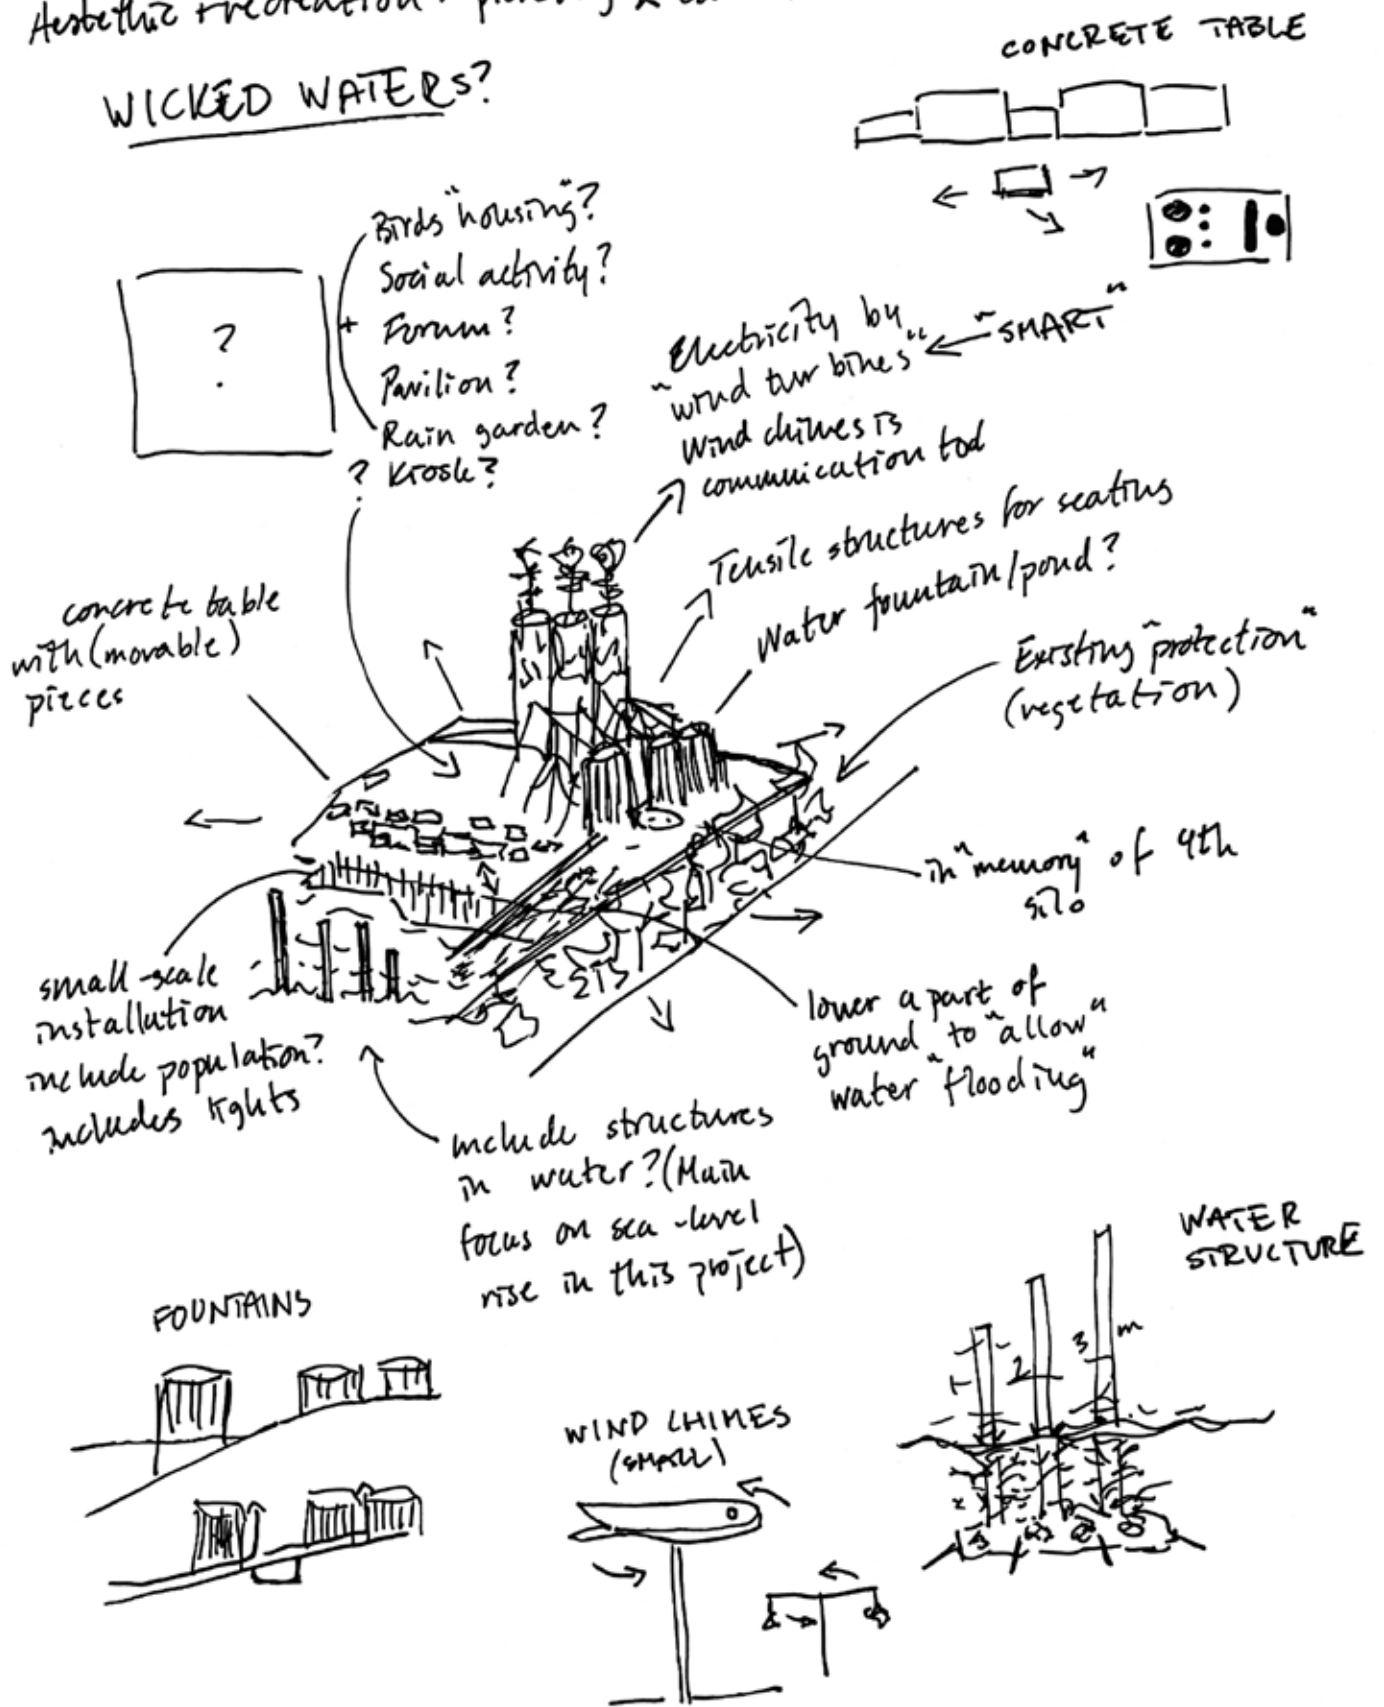 Aestethic + recreation +
WICKED WATERS?
CONCRETE TABLE
Birds "housing"?
Social activity?
+ Forum?
?
Pavilion?
Rain garden?
? Kiosk?
Electricity by
"wind turbines"
"SMART"
Wind chimes is
communication tool
Tensile structures for seating
Water fountain/pond?
Existing "protection"
(vegetation)
concrete table
with (movable)
pieces
in "memory" of 4th
silo
small-scale
installation
include population?
includes lights
lower a part of
ground to "allow"
water "flooding"
include structures
in water? (Main
focus on sea-level
rise in this project)
WATER
STRUCTURE
1 2 3 m
FOUNTAINS
WIND CHIMES
(SMALL)